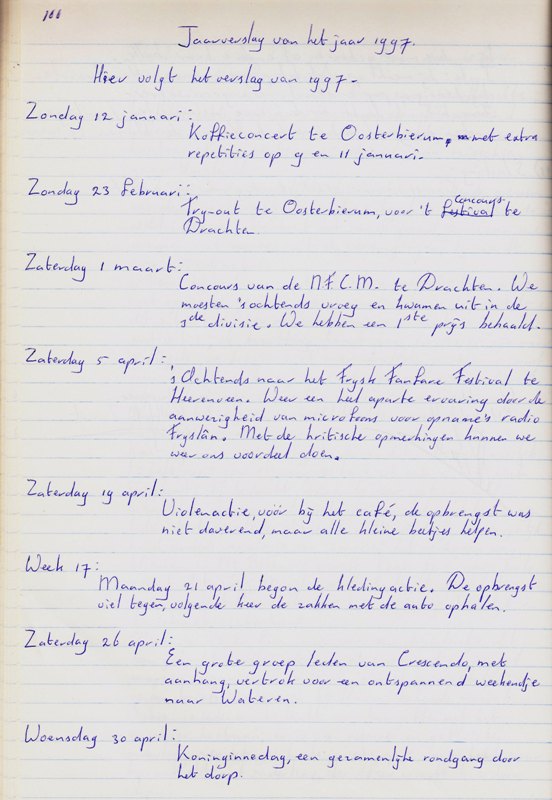 166
Jaarverslag van het jaar 1997.
Hier volgt het verslag van 1997.
Zondag 12 januari:
Koffieconcert te Oosterbierum, met extra
repetities op 9 en 11 januari.
Zondag 23 februari:
Tryout te Oosterbierum, voor 't Festival concours te
Drachten.
Zaterdag 1 maart:
Concours van de N.F.C.M. te Drachten. We
moesten 's ochtends vroeg en kwamen uit in de
3de divisie. We hebben een 1ste prijs behaald.
Zaterdag 5 april:
's Ochtends naar het Frysk Fanfare Festival te
Heerenveen. Weer een heel aparte ervaring door de
aanwezigheid van microfoons voor opname's radio
Fryslân. Met de kritische opmerkingen kunnen we
weer ons voordeel doen.
Zaterdag 19 april:
Violenactie, voor bij het café, de opbrengst was
niet daverend, maar alle kleine beetjes helpen.
Week 17:
Maandag 21 april begon de kledingactie. De opbrengst
viel tegen, volgende keer de zakken met de auto ophalen.
Zaterdag 26 april:
Een grote groep leden van Crescendo, met
aanhang, vertrok voor een ontspannend weekendje
naar Wateren.
Woensdag 30 april:
Koninginnedag, een gezamenlijke rondgang door
het dorp.